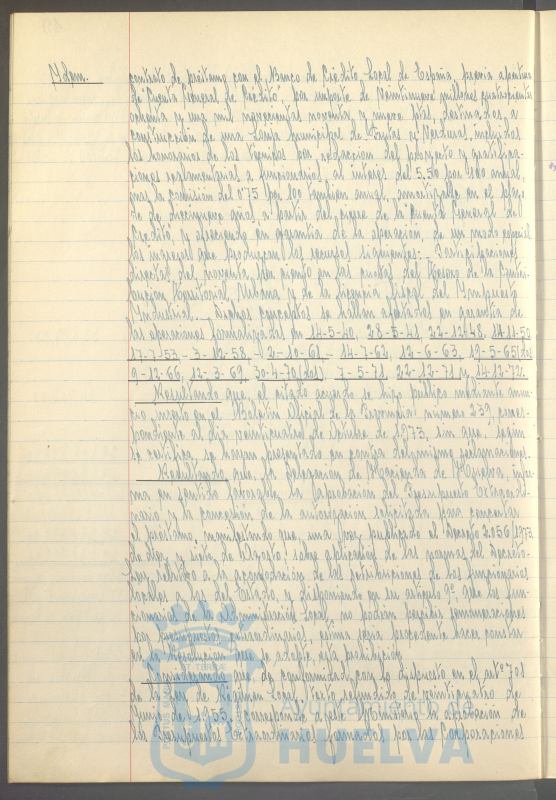 Idem.
contrato de préstamo con el Banco de Crédito Local de España, previa apertura
de "Cuenta General de Crédito" por importe de veintinueve millones cuatrocientas
ochenta y una mil novecientas noventa y nueve ptas, destinados a
construcción de una Lonja Municipal de Frutas y Verduras, incluidos
los honorarios de los Técnicos por redacción del proyecto y gratifica-
ciones reglamentarias a funcionarios, al interés del 5,50 por 100 anual,
mas la comisión del 0'75 por 100 también anual, amortizable en el perio-
do de diecinueve años, a partir del cierre de la "Cuenta General de
Crédito", y ofreciendo en garantía de la operación, de un modo especial
los ingresos que produzcan los recursos siguientes:- Participaciones
directas del noventa por ciento en las cuotas del Tesoro de la Contri-
bución Territorial Urbana y de la licencia fiscal del Impuesto
Industrial.- Dichos conceptos se hallan afectados en garantía de
las operaciones formalizadas en 14-5-40, 28-5-41, 22-12-48, 14-11-50
17-7-53 - 3-12-58, - 2-10-61 - 14-7-62, 12-6-63, 19-5-65 (dos)
9-12-66, 12-3-69, 30-4-70 (dos), 7-5-71, 22-12-71 y 14-12-72.
Resultando que, el citado acuerdo se hizo público mediante anun-
cio inserto en el Boletín Oficial de la Provincia número 239, corres-
pondiente al día veinticuatro de Octubre de 1973, sin que, según
se certifica se hayan presentado en contra del mismo reclamaciones.
Resultando que, la Delegación de Hacienda de Huelva, infor-
ma en sentido favorable la aprobación del Presupuesto Extraordi-
nario y la concesión de la autorización solicitada para concertar
el préstamo, manifestando que una vez publicado el Decreto 2.056/1973
de diez y siete de Agosto, sobre aplicación de las normas del Decreto-
Ley relativo a la acomodación de las retribuciones de los funcionarios
locales a los del Estado, y disponiendo en su artículo 9º, que los fun-
cionarios de la Administración Local, no podrán percibir remuneraciones
por presupuestos extraordinarios, estima sería procedente hacer constar
en la resolución que se adopte, esta prohibición.
Considerando que de conformidad con lo dispuesto en el artº 701
de la Ley de Régimen Local, texto refundido de veinticuatro de
Junio de 1.955, corresponde a este Ministerio la aprobación de
los Presupuestos Extraordinarios formados por las Corporaciones
Ayuntamiento de
HUELVA